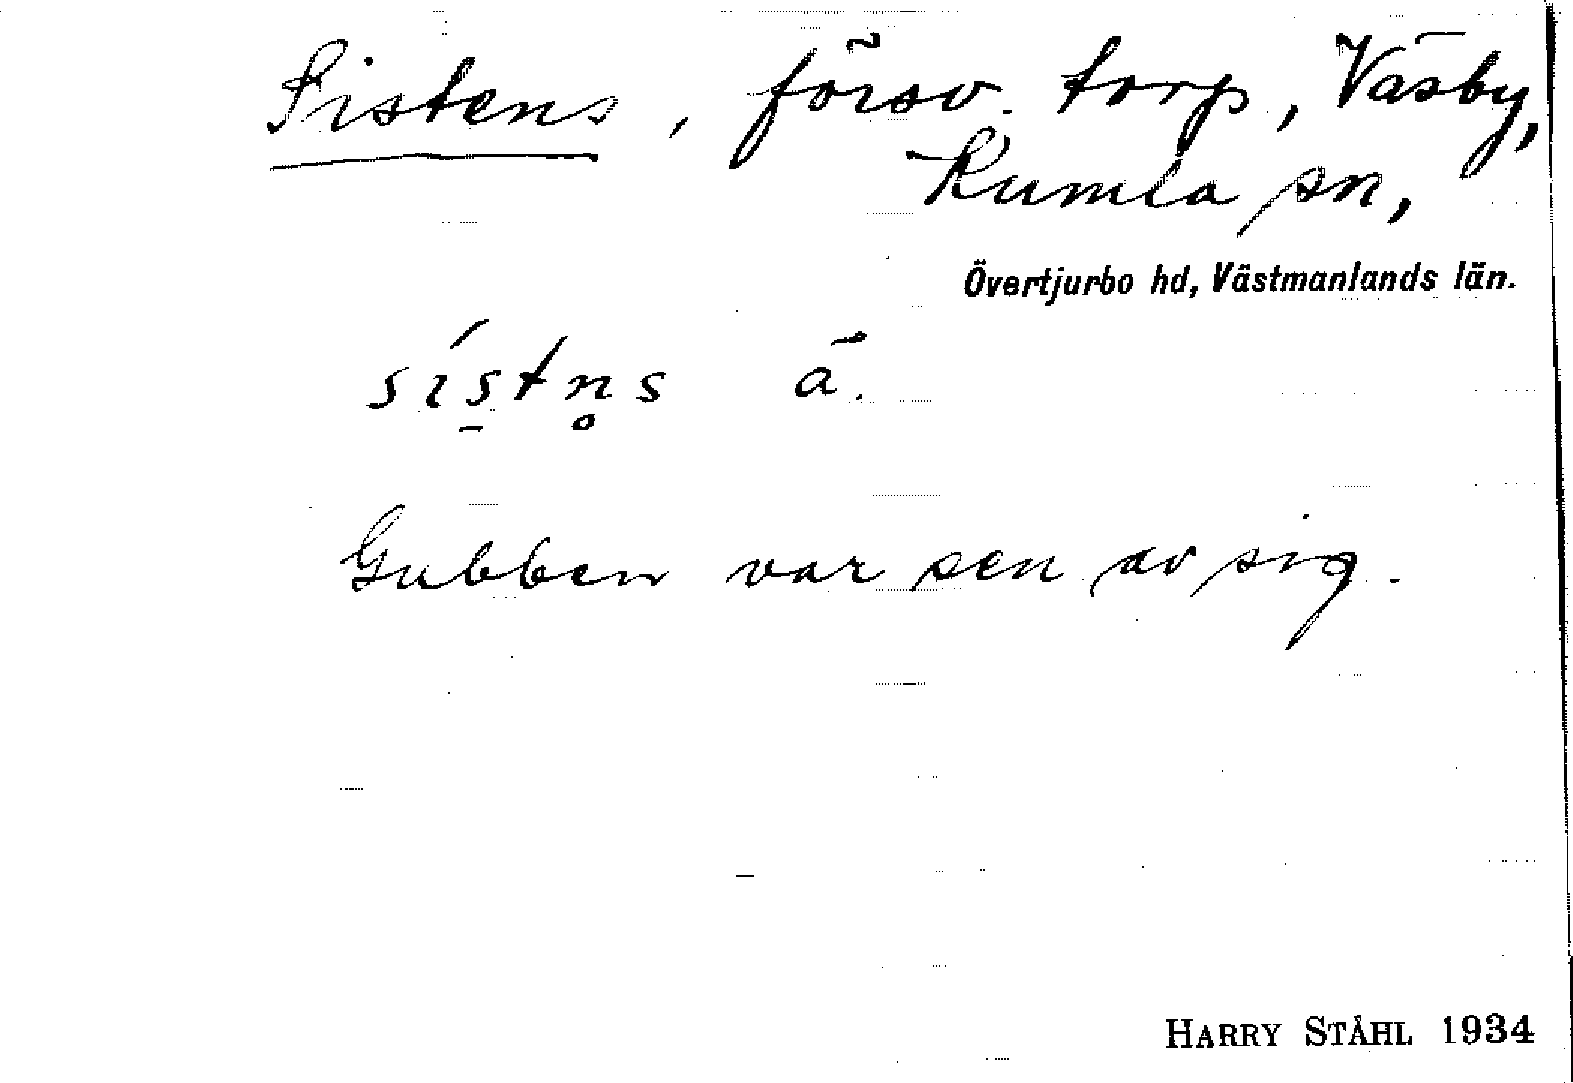 Sistens, försv. torp, Väsby,
Kumla sn,
Övertjurbo hd, Västmanlands län.
sís̱tn̥s ä.
Gubben var sen av sig.
HARRY STÅHL 1934